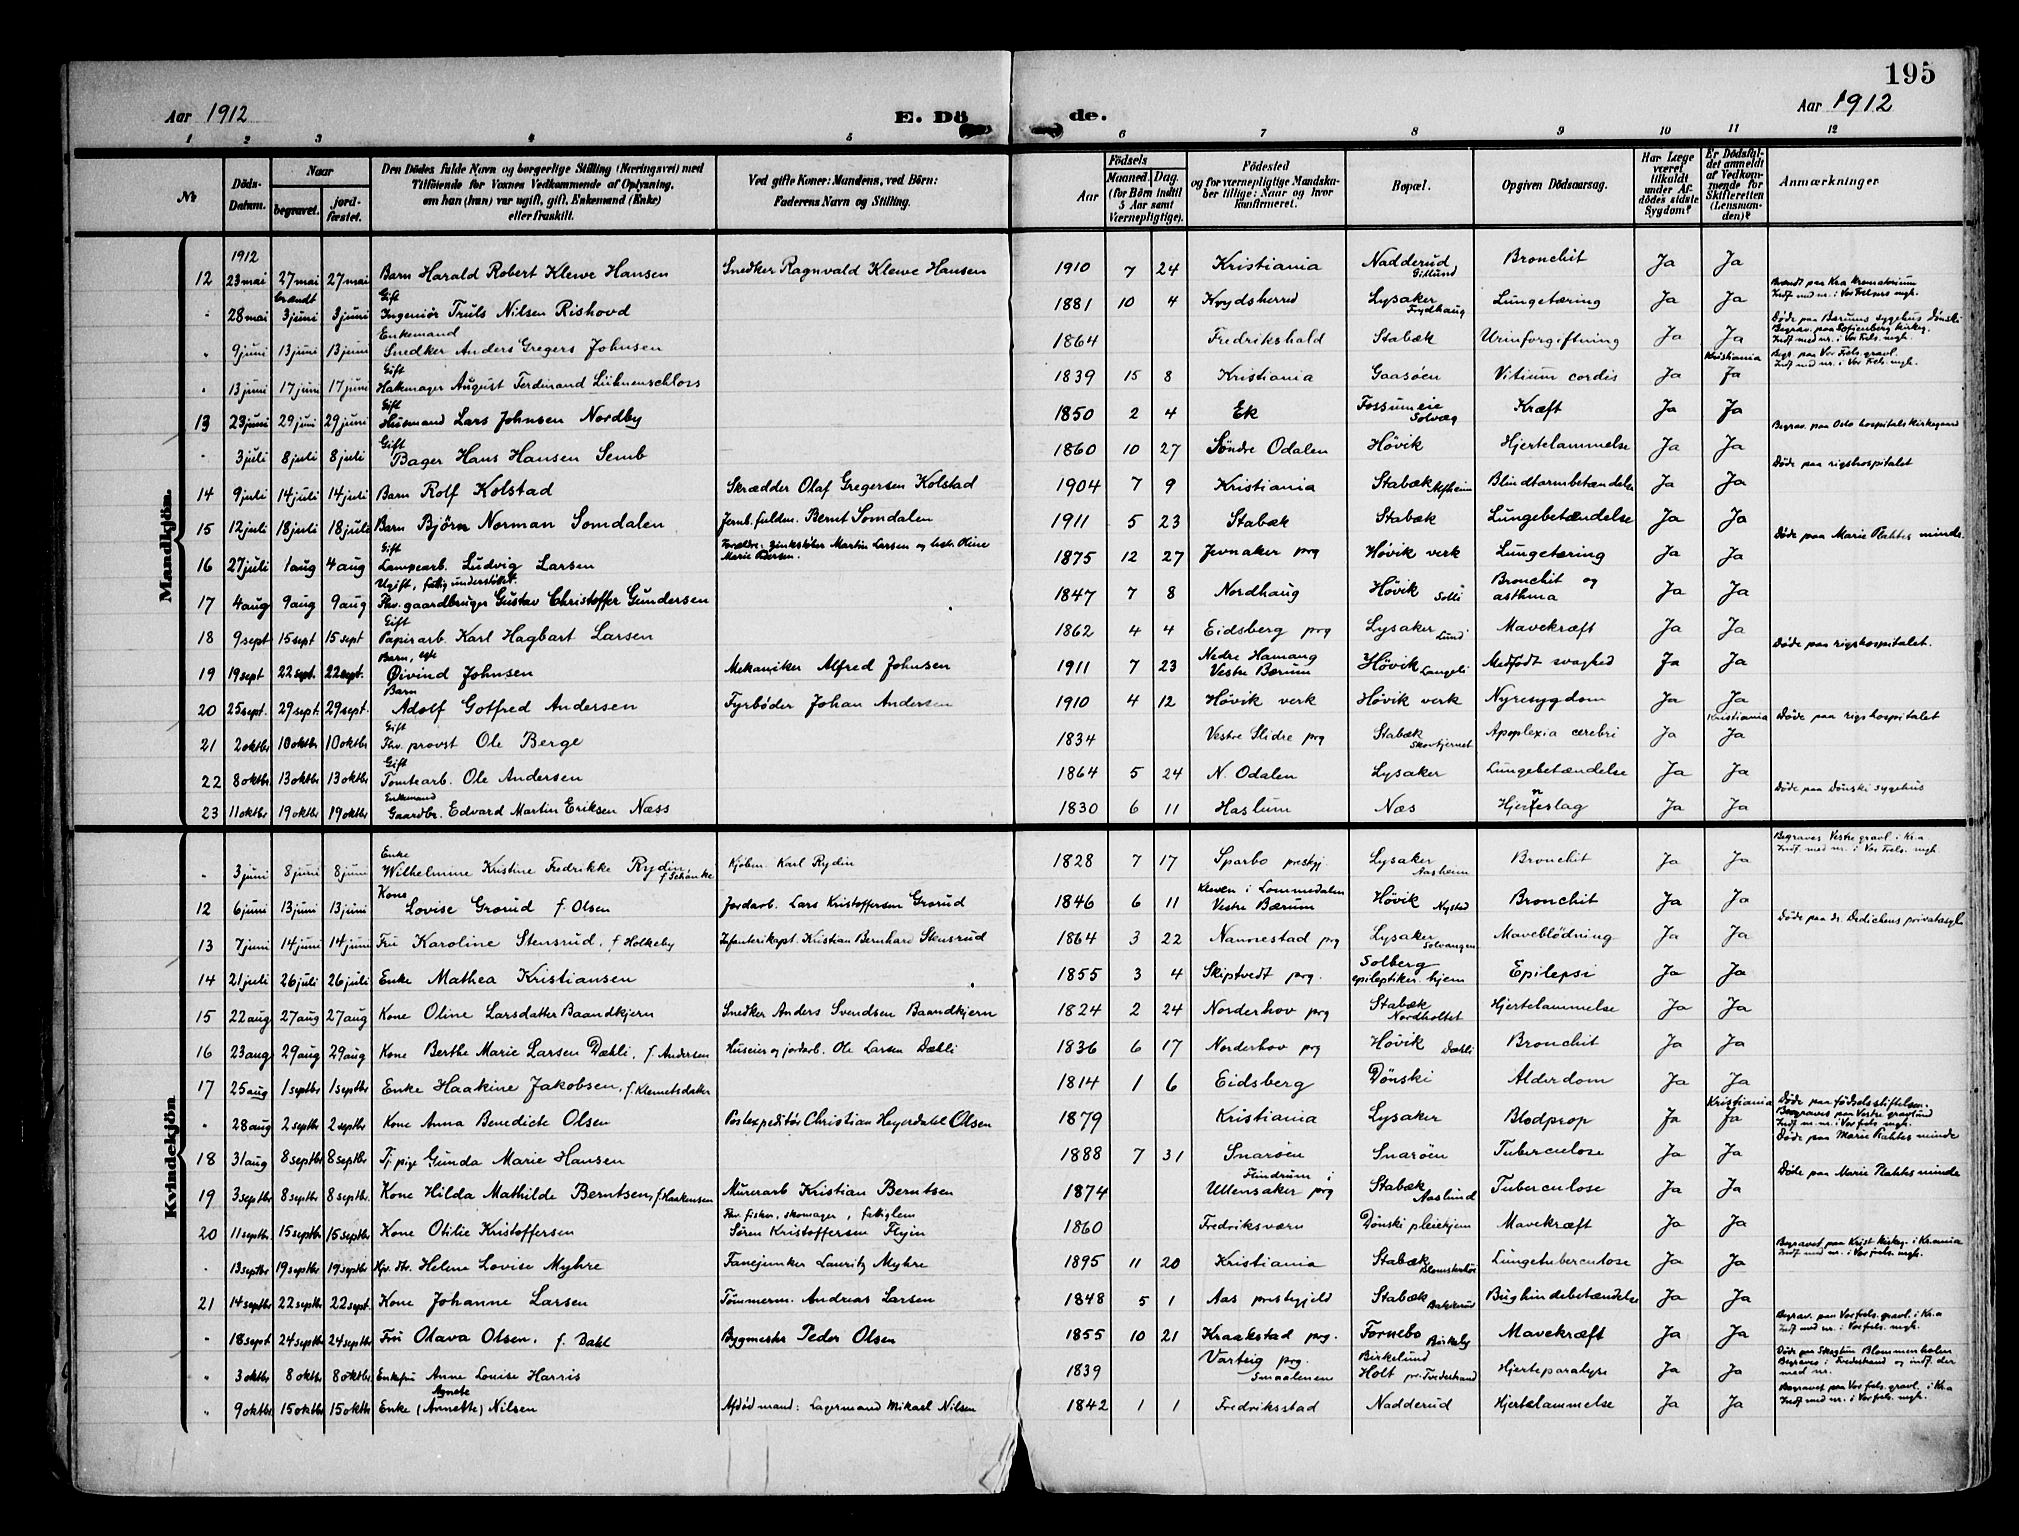 195
Aar 1912 E. Dö de. Aar 1912
1 2 3 4 5 6 7 8 9 10 11 12
№ Döds-Datum. Naar begravet. jordfæstet. Den Dödes fulde Navn og borgerlige Stilling (Næringsvei) med Tilföiende for Voxnes Vedkommende af Oplysning, om han (hun) var ugift, gift, Enkemand (Enke) eller fraskilt. Ved gifte Koner: Mandens, ved Börn: Faderens Navn og Stilling. Födsels Aar Maaned. Dag. (for Börn indtil 5 Aar samt Værnepligtige). Födested og for værnepligtige Mandskaber tillige: Naar og hvor konfirmeret. Bopæl. Opgiven Dödsaarsag. Har Læge været tilkaldt under Afdödes sidste Sygdom? Er Dödsfaldet anmeldt af Vedkommende for Skifteretten (Lensmanden)? Anmærkninger
Mandkjön.
1912
12 23 mai 27 mai 27 mai Barn Harald Robert Klewe Hansen Snedker Ragnvald Klewe Hansen 1910 7 24 Kristiania Nadderud, Bronchit Ja Ja
" 28 mai brændt 3 juni 3 juni Gift Ingeniør Truls Nilsen Rishovd 1881 10 4 Krydsherred Lysaker Frydhaug Lungetæring Ja Ja Brændt paa Kra Krematorium Indf med nr. i Vor Frelsers mgh.
" 9 juni 13 juni 13 juni Enkemand Snedker Anders Gregers Johnsen 1864 Fredrikshald Stabæk Urinforgiftning Ja Ja Døde paa Bærums sygehus Dønski Begrav. paa Sofienberg kirkeg. Indf med nr. i Vor Frels. mgh.
" 13 juni 17 juni 17 juni Gift Hatmager August Ferdinand Lühnenschloss 1839 15 8 Kristiania Gaasøen Vitium cordis Ja Kristiania Ja Begr. paa Vor Frels. gravl. Indf med nr. i Vor Frels. mgh.
13 23 juni 29 juni 29 juni Gift Husmand Lars Johnsen Nordby 1850 2 4 Ek Fossumeie Solvæg Kræft Ja Ja
" 3 juli 8 juli 8 juli Gift Bager Hans Hansen Semb 1860 10 27 Søndre Odalen Høvik Hjertelammelse Ja Ja Begrav. paa Oslo hospitals kirkegaard
14 9 juli 14 juli 14 juli Barn Rolf Kolstad Skrædder Olaf Gregersen Kolstad 1904 7 9 Kristiania Stabæk Alfheim Blindtarmbetændelse Ja Ja Døde paa rigshospitalet
15 12 juli 18 juli 18 juli Barn Bjørn Norman Somdalen Jernb. fuldm. Bernt Somdalen 1911 5 23 Stabæk Stabæk Lungebetændelse Ja Ja
16 27 juli 1 aug 4 aug Gift Lampearb. Ludvig Larsen Forældre: Martin Larsen og Oline Marie Pedersen. 1875 12 27 Jevnaker prg Høvik verk Lungetæring Ja Ja Døde paa Marie Plahtes minde
17 4 aug 9 aug 9 aug Ugift, fattig understøttet. Fhv. gaardbruger Gustav Christoffer Gundersen 1847 7 8 Nordhaug Høvik Solli Bronchit og asthma Ja Ja
18 9 sept 15 sept 15 sept Gift Papirarb. Karl Hagbart Larsen 1862 4 4 Eidsberg prg Lysaker Lund Mavekræft Ja Ja
19 19 sept 22 sept. 22 sept. Barn, egte Øivind Johnsen Mekaniker Alfred Johnsen 1911 7 23 Nedre Hamang Vestre Bærum Høvik Langeli Medfødt svaghed Ja Ja Døde paa rigshospitalet.
20 25 sept. 29 sept. 29 sept. Barn Adolf Gotfred Andersen Fyrbøder Johan Andersen 1910 4 12 Høvik verk Høvik verk Nyresygdom Ja Ja
21 2 oktbr 10 oktbr 10 oktbr Gift Fhv. provst Ole Berge 1834 Vestre Slidre prg Stabæk Skovtjernet Apoplexia cerebri Ja Kristiania Ja Døde paa rigshospitalet
22 8 oktbr 13 oktbr 13 oktbr Gift Tomtearb. Ole Andersen 1864 5 24 N. Odalen Lysaker Lungebetændelse Ja Ja
23 11 oktbr 19 oktbr 19 oktbr Enkemand Gaardbr. Edvard Martin Eriksen Næss 1830 6 11 Haslum Næs Hjerneslag Ja Ja Døde paa Dønski sygehus
Kvindekjön
" 3 juni 8 juni 8 juni Enke Wilhelmine Kristine Fredrikke Rydin f Schønke Kjøbm. Karl Rydin 1828 7 17 Sparbo prestgj. Lysaker Aasheim Bronchit Ja Ja Begraves Vestre gravl. i Kra Indf. med nr. i Vor Frels. mgh.
12 6 juni 13 juni 13 juni Kone Lovise Grorud f. Olsen Jordarb. Lars Kristoffersen Grorud 1846 6 11 Kleven i Lommedalen Vestre Bærum Høvik Nystad Bronchit Ja Ja
13 7 juni 14 juni 14 juni Fru Karoline Stensrud, f Holkeby Infanterikapt. Kristian Bernhard Stensrud 1864 3 22 Nannestad prg Lysaker Solvangen Maveblødning Ja Ja Døde paa dr. Dedichens privatasyl
14 21 juli 26 juli 26 juli Enke Mathea Kristiansen 1855 3 4 Skiptvedt prg. Solberg epileptiker hjem Epilepsi Ja Ja
15 22 aug 27 aug 27 aug Kone Oline Larsdatter Baandkjern Snedker Anders Svendsen Baandkjern 1824 2 24 Norderhov prg Stabæk Nordholtet Hjertelammelse Ja Ja
16 23 aug 29 aug 29 aug Kone Berthe Marie Larsen Dæhli, f. Andersen Huseier og jordarb. Ole Larsen Dæhli 1836 6 17 Norderhov prg Høvik Dæhli Bronchit Ja Ja
17 25 aug 1 septbr 1 septbr Enke Haakine Jakobsen, f. Klemetsdatter 1814 1 6 Eidsberg Dønski Alderdom Ja Ja
" 28 aug 2 septbr 2 septbr Kone Anna Benedicte Olsen Postexpeditør Christian Heyerdahl Olsen 1879 Kristiania Lysaker Blodprop Ja Kristiania Ja Døde paa fødselsstiftelsen. Begraves paa Vestre gravlund Indf m. nr. i Vor frels mgh.
18 31 aug 8 septbr 8 septbr Tj. pige Gunda Marie Hansen 1888 7 31 Snarøen Snarøen Tuberculose Ja Ja Døde paa Marie Plahtes minde
19 3 septbr 8 septbr 8 septbr. Kone Hilda Mathilde Berntsen, f Haakensen Murerarb Kristian Berntsen 1874 i Ullensaker prg Stabæk Aaslund Tuberculose Ja Ja Døde paa Marie Plahtes minde
20 11 septbr 15 septbr 15 septbr. Kone Otilie Kristoffersen Fhv. fisker, skomager, fattiglem Søren Kristoffersen 1860 Fredriksværn Dønski pleiehjem Mavekræft Ja Ja
" 13 septbr 19 septbr 19 septbr Helene Lovise Myhre Fanejunker Lauritz Myhre 1895 11 20 Kristiania Stabæk Lungetuberculose Ja Ja Begravet paa Krist kirkeg. i Kr.ania Indf. med nr. i Vor frels. mgh.
21 14 septbr 22 septbr 22 sept. Kone Johanne Larsen Tømmerm. Andreas Larsen 1848 5 1 Aas prestegjeld Stabæk Bakkerud Bughindebetændelse Ja Ja
" 18 sept 24 septbr 24 septbr Fru Olava Olsen, f. Dahl Bygmester Peder Olsen 1855 10 21 Kraakstad prg. Fornebo Birkeby Mavekræft Ja Ja Begrav. paa Vor frels. gravl. i Kra Indf med nr. i Vor frels. mgh.
" 3 oktbr 8 oktbr 8 oktbr Enkefru Anne Louise Harris 1839 Varteig prg. Smaalenene Birkelund Holt pr. Tvedestrand Hjerteparalyse Ja Ja Døde paa Skogtun Blommenholm Begraves i Tvedestrand og indf. der med nr.
" 9 oktbr 15 oktbr 15 oktbr Enke (Annette) Agnete Nilsen Afdød mand: Lagermand Mikael Nilsen 1842 1 1 Fredriksstad Nadderud Hjertelammelse Ja Ja Begravet paa Vor frels. gravl. i Kra Indf med nr. i Vor frels. mgh.